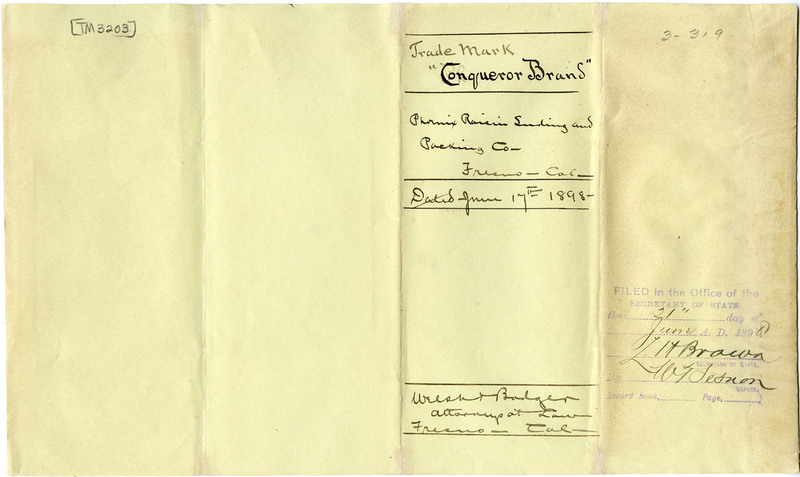 [TM3203]
Trade Mark
"Conqueror Brand"
Phoenix Raisin Seeding and
Packing Co-
Fresno - Cal-
Dated June 17th 1898-
Welsh & Badger
Attorneys at Law
Fresno - Cal-
3-319
FILED in the Office of the
SECRETARY OF STATE
the 21" day of
June A. D. 1898
L. H. Brown
SECRETARY OF STATE.
By
DEPUTY.
Record Book, Page,